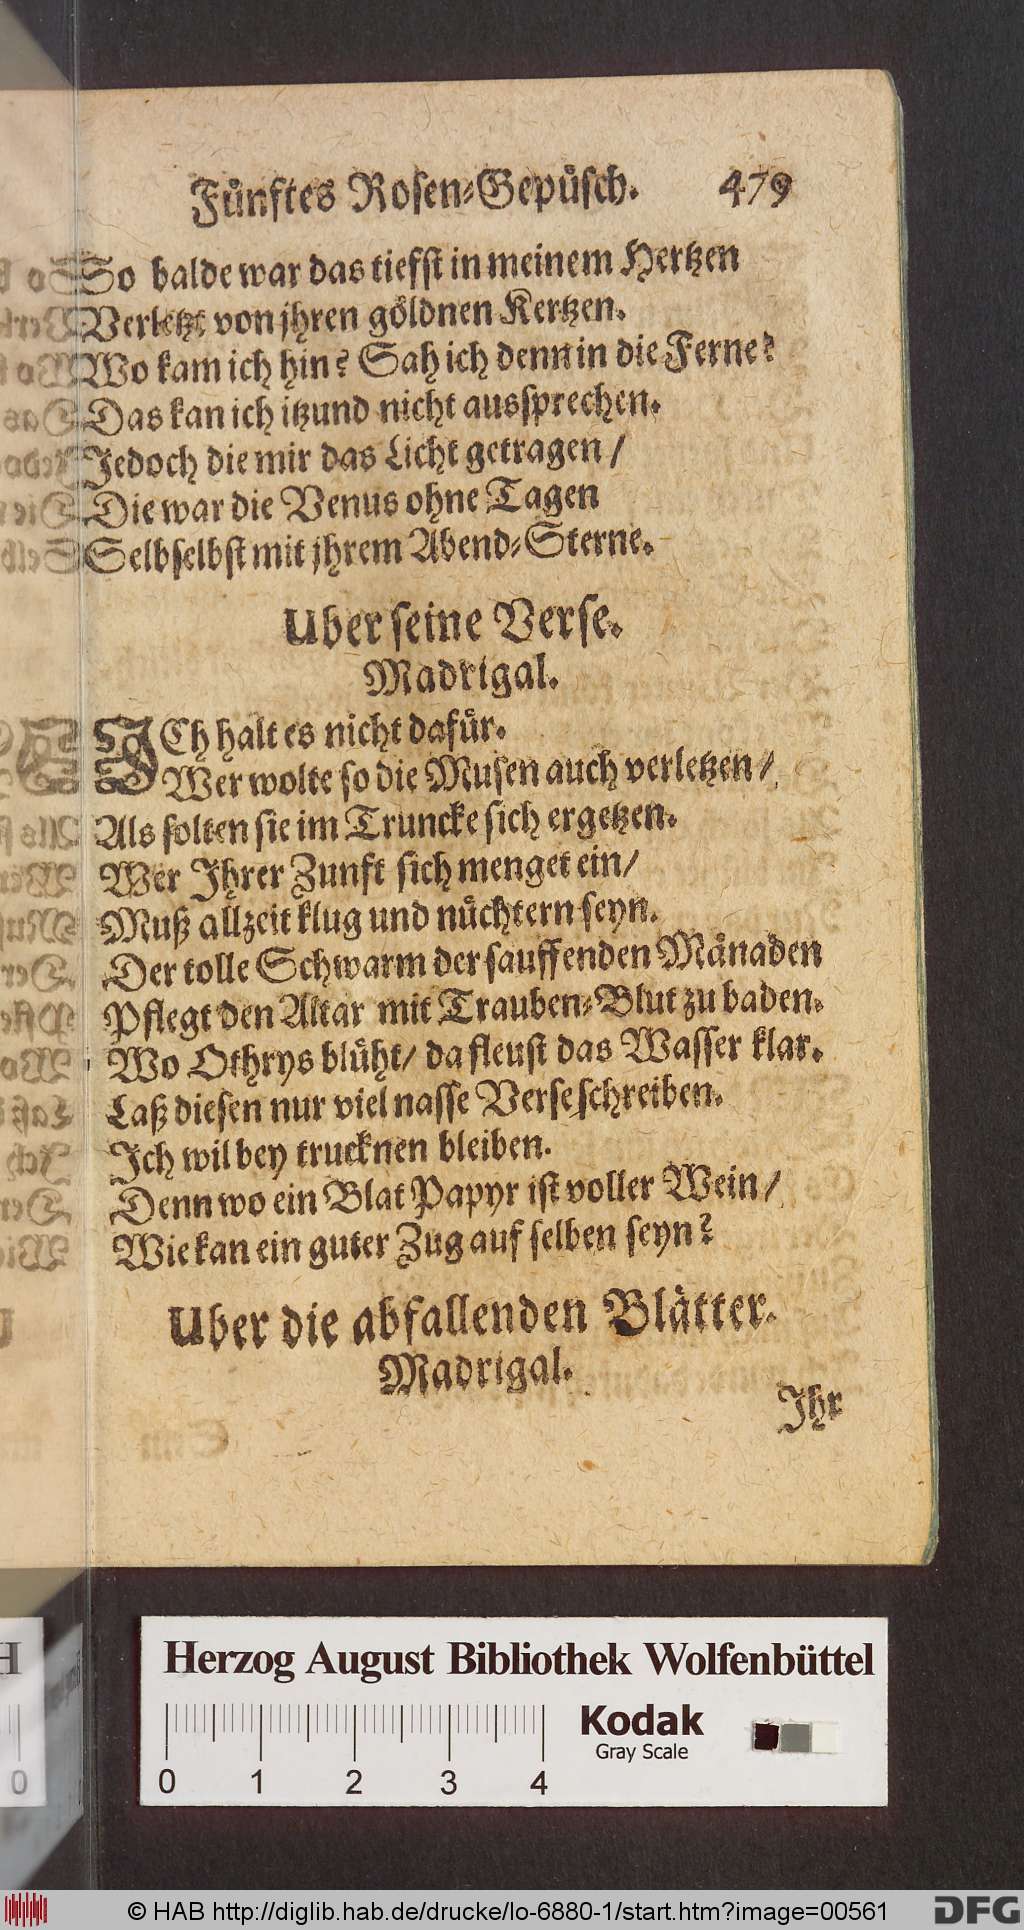 Fuͤnftes Rosen-Gepuͤsch. 479
So balde war das tiefst in meinem Hertzen
Verletzt von jhren goͤldnen Kertzen.
Wo kam ich hin? Sah ich denn in die Ferne?
Das kan ich itzund nicht aussprechen.
Jedoch die mir das Licht getragen/
Die war die Venus ohne Tagen
Selbselbst mit jhrem Abend-Sterne.
Uber seine Verse.
Madrigal.
ICh halt es nicht dafuͤr.
Wer wolte so die Musen auch verletzen/
Als solten sie im Truncke sich ergetzen.
Wer Ihrer Zunft sich menget ein/
Muß allzeit klug und nuͤchtern seyn.
Der tolle Schwarm der sauffenden Maͤnaden
Pflegt den Altar mit Trauben-Blut zu baden.
Wo Othrys bluͤht/ da fleust das Wasser klar.
Laß diesen nur viel nasse Verse schreiben.
Ich wil bey trucknen bleiben.
Denn wo ein Blat Papyr ist voller Wein/
Wie kan ein guter Zug auf selben seyn?
Uber die abfallenden Blaͤtter.
Madrigal.
Ihr
Herzog August Bibliothek Wolfenbüttel
Kodak
Gray Scale
0 1 2 3 4
© HAB http://diglib.hab.de/drucke/lo-6880-1/start.htm?image=00561
DFG